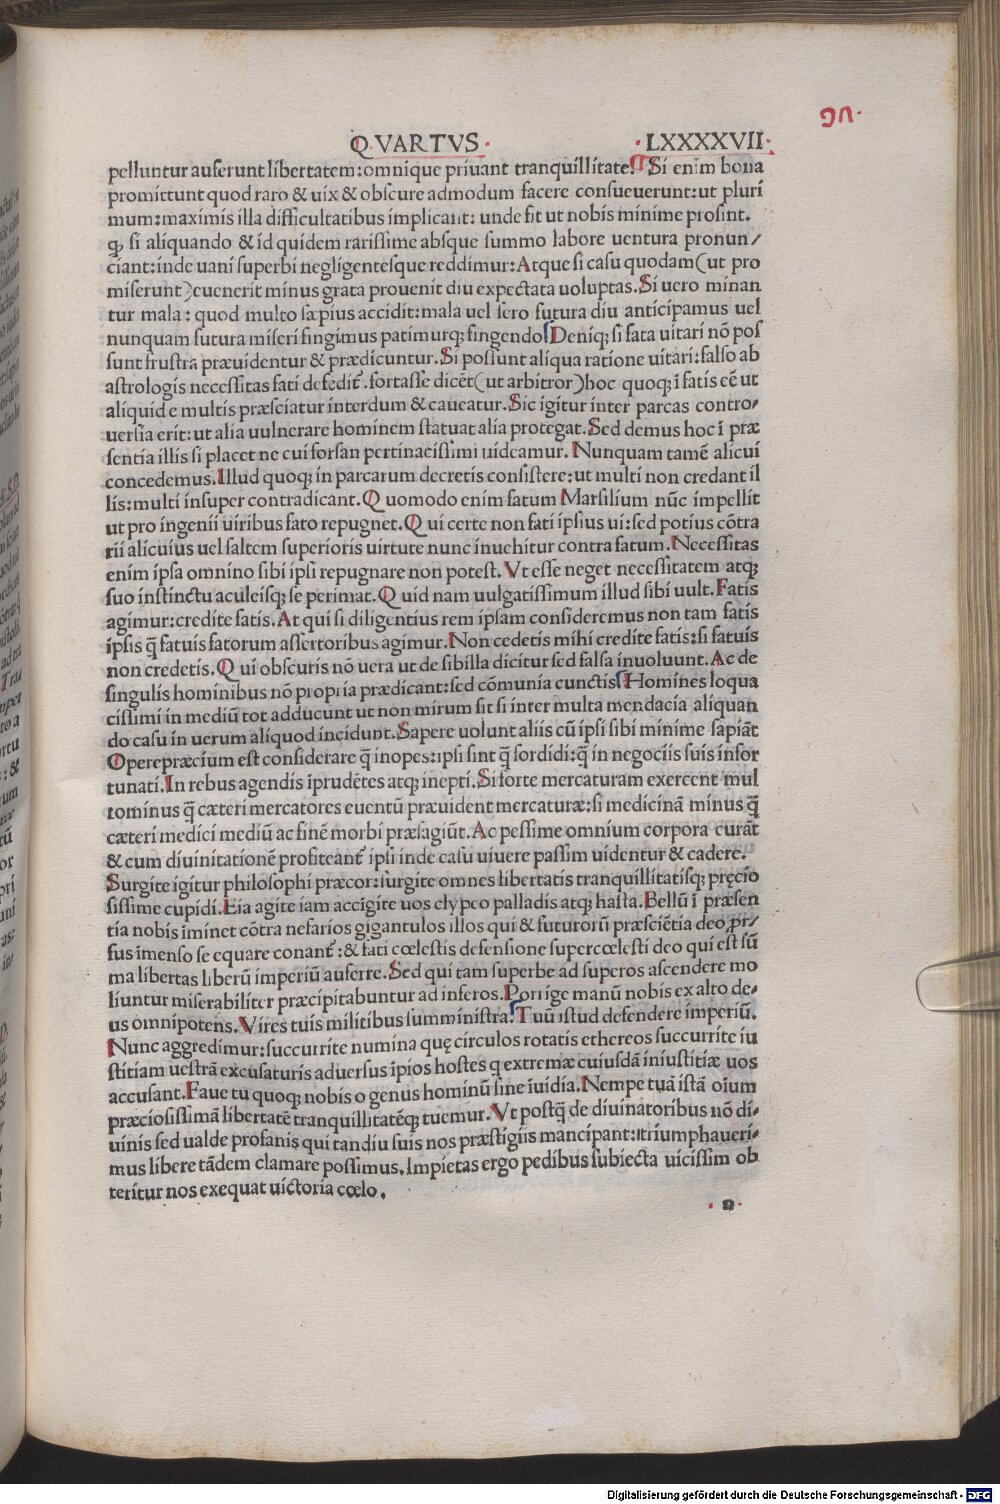 QVARTVS · LXXXXVII ·
97.
pelluntur auferunt libertatem: omnique priuant tranquillitate. Si enim bona
promittunt quod raro & uix & obscure admodum facere consueuerunt: ut pluri
mum: maximis illa difficultatibus implicant: unde fit ut nobis minime prosint.
ꝙ si aliquando & id quidem rarissime absque summo labore uentura pronun/
ciant: inde uani superbi negligentesque reddimur: Atque si casu quodam (ut pro
miserunt) euenerit minus grata prouenit diu expectata uoluptas. Si uero minan
tur mala: quod multo sæpius accidit: mala uel sero futura diu anticipamus uel
nunquam futura miseri fingimus patimurqꝫ fingendo. Deniqꝫ si fata uitari nō pos
sunt frustra præuidentur & prædicuntur. Si possunt aliqua ratione uitari: falso ab
astrologis necessitas fati defedit̃. fortasse dicēt (ut arbitror) hoc quoqꝫ ī fatis eē ut
aliquid e multis præsciatur interdum & caueatur. Sic igitur inter parcas contro/
uersia erit: ut alia uulnerare hominem statuat alia protegat. Sed demus hoc ī præ
sentia illis si placet ne cui forsan pertinacissimi uideamur. Nunquam tamē alicui
concedemus. Illud quoqꝫ in parcarum decretis consistere: ut multi non credant il
lis: multi insuper contradicant. Quomodo enim fatum Marsilium nūc impellit
ut pro ingenii uiribus fato repugnet. Qui certe non fati ipsius ui: sed potius cōtra
rii alicuius uel saltem superioris uirtute nunc inuehitur contra fatum. Necessitas
enim ipsa omnino sibi ipsi repugnare non potest. Vt esse neget necessitatem atqꝫ
suo instinctu aculeisqꝫ se perimat. Quid nam uulgatissimum illud sibi uult. Fatis
agimur: credite fatis. At qui si diligentius rem ipsam consideremus non tam fatis
ipsis q̄ fatuis fatorum assertoribus agimur. Non cedetis mihi credite fatis: si fatuis
non credetis. Qui obscuris nō uera ut de sibilla dicitur sed falsa inuoluunt. Ac de
singulis hominibus nō propria prædicant: sed cōmunia cunctis. Homines loqua
cissimi in mediū tot adducunt ut non mirum sit si inter multa mendacia aliquan
do casu in uerum aliquod incidunt. Sapere uolunt aliis cū ipsi sibi minime sapiāt
Operepræcium est considerare q̄ inopes: ipsi sint q̄ sordidi: q̄ in negociis suis infor
tunati. In rebus agendis īprudētes atqꝫ inepti. Si forte mercaturam exercent mul
tominus q̄ cæteri mercatores euentū præuident mercaturæ: si medicinā minus q̄
cæteri medici mediū ac finē morbi præsagiūt. Ac pessime omnium corpora curāt
& cum diuinitationē profiteant̃ ipsi inde casu uiuere passim uidentur & cadere.
Surgite igitur philosophi præcor: surgite omnes libertatis tranquillitatisqꝫ pręcio
sissime cupidi. Eia agite iam accigite uos clypeo palladis atqꝫ hasta. Bellū ī præsen
tia nobis īminet cōtra nefarios gigantulos illos qui & futurorū præsciētia deo pr/
sus īmenso se equare conant̃: & fati cœlestis defensione supercœlesti deo qui est sū
ma libertas liberū imperiū auferre. Sed qui tam superbe ad superos ascendere mo
liuntur miserabiliter præcipitabuntur ad inferos. Porrige manū nobis ex alto de/
us omnipotens. Vires tuis militibus sumministra. Tuū istud defendere imperiū.
Nunc aggredimur: succurrite numina quę circulos rotatis ethereos succurrite iu
stitiam uestrā excusaturis aduersus īpios hostes q extremæ cuiusdā iniustitiæ uos
accusant. Faue tu quoqꝫ nobis o genus hominū sine īuidia. Nempe tuā istā oīum
præciosissimā libertatē tranquillitatēqꝫ tuemur. Vt postq̄ de diuinatoribus nō di/
uinis sed ualde profanis qui tandiu suis nos præstigiis mancipant: triumphaueri/
mus libere tādem clamare possimus. Impietas ergo pedibus subiecta uicissim ob
teritur nos exequat uictoria cœlo.
Digitalisierung gefördert durch die Deutsche Forschungsgemeinschaft - DFG